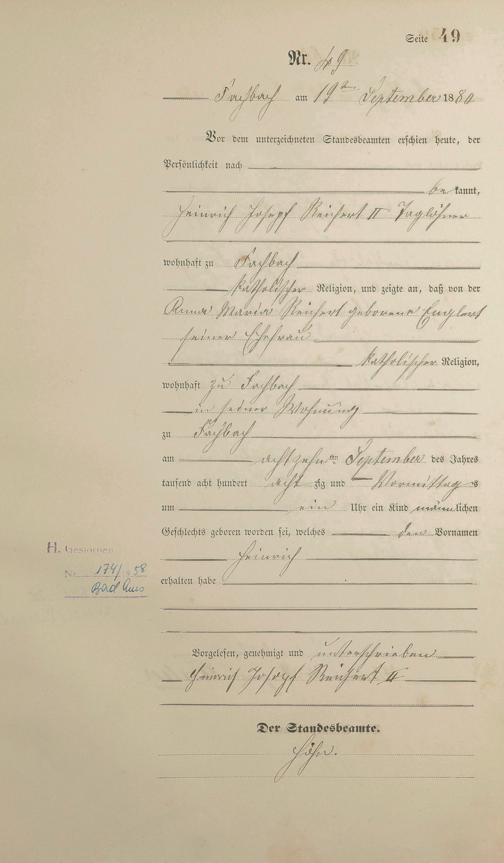 Seite 49
Nr. 49
Fachbach am 19ten September 1880
Vor dem unterzeichneten Standesbeamten erschien heute, der
Persönlichkeit nach
bekannt,
Heinrich Joseph Reichert II Taglöhner
wohnhaft zu Fachbach
katholischer Religion, und zeigte an, daß von der
Anna Maria Reichert geborene Englert
seiner Ehefrau
katholischer Religion,
wohnhaft zu Fachbach
in seiner Wohnung
zu Fachbach
am achtzehnten September des Jahres
tausend acht hundert achtzig und Vormittags
um ein Uhr ein Kind männlichen
Geschlechts geboren worden sei, welches den Vornamen
Heinrich
H. Gestorben
erhalten habe
Nr. 174/1958
Bad Ems
Vorgelesen, genehmigt und unterschrieben
Heinrich Joseph Reichert II
Der Standesbeamte.
Höhn.